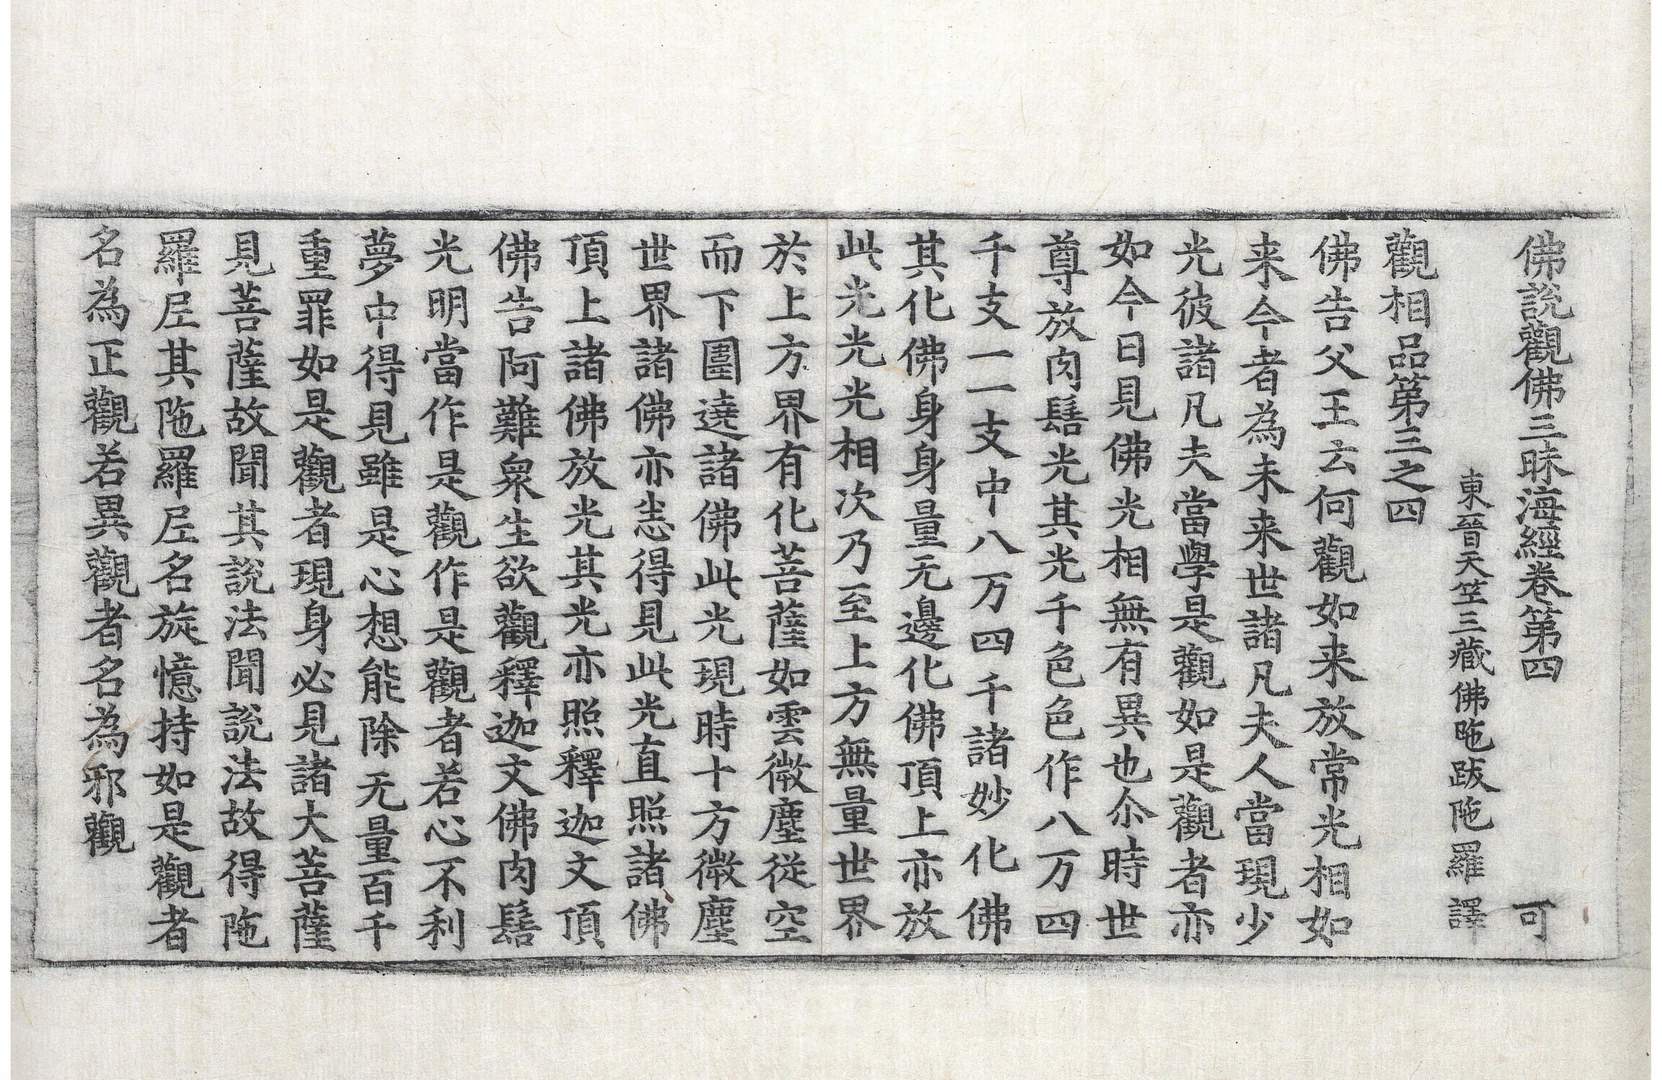 佛說觀佛三昧海經卷第四 可
東晉天竺三藏佛陁跋陁羅 譯
觀相品第三之四
佛告父王云何觀如来放常光相如
来今者為未来世諸凡夫人當現少
光彼諸凡夫當學是觀如是觀者亦
如今日見佛光相無有異也尒時世
尊放肉髻光其光千色色作八万四
千支一一支中八万四千諸妙化佛
其化佛身身量无邊化佛頂上亦放
此光光光相次乃至上方無量世界
於上方界有化菩薩如雲微塵從空
而下圍遶諸佛此光現時十方微塵
世界諸佛亦悉得見此光直照諸佛
頂上諸佛放光其光亦照釋迦文頂
佛告阿難衆生欲觀釋迦文佛肉髻
光明當作是觀作是觀者若心不利
夢中得見雖是心想能除无量百千
重罪如是觀者現身必見諸大菩薩
見菩薩故聞其說法聞說法故得陁
羅尼其陁羅尼名旋憶持如是觀者
名為正觀若異觀者名為邪觀